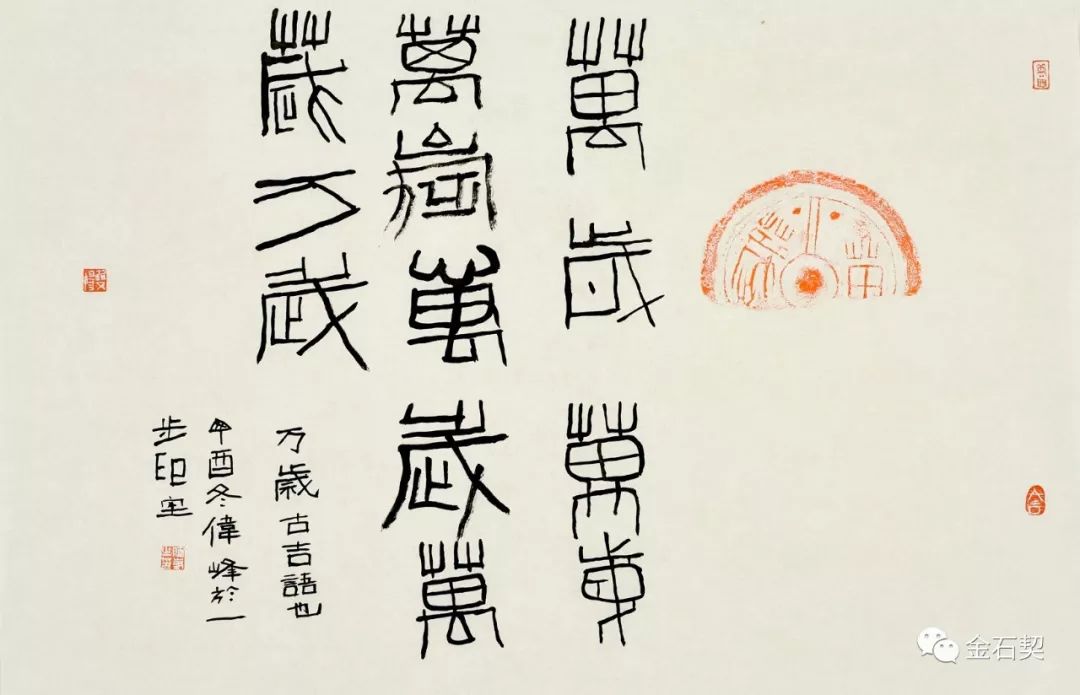 萬歲萬歲
萬歲萬歲萬
歲万歲
万歲古吉語也
甲酉冬偉峰於一
步印室
大吉
金石契